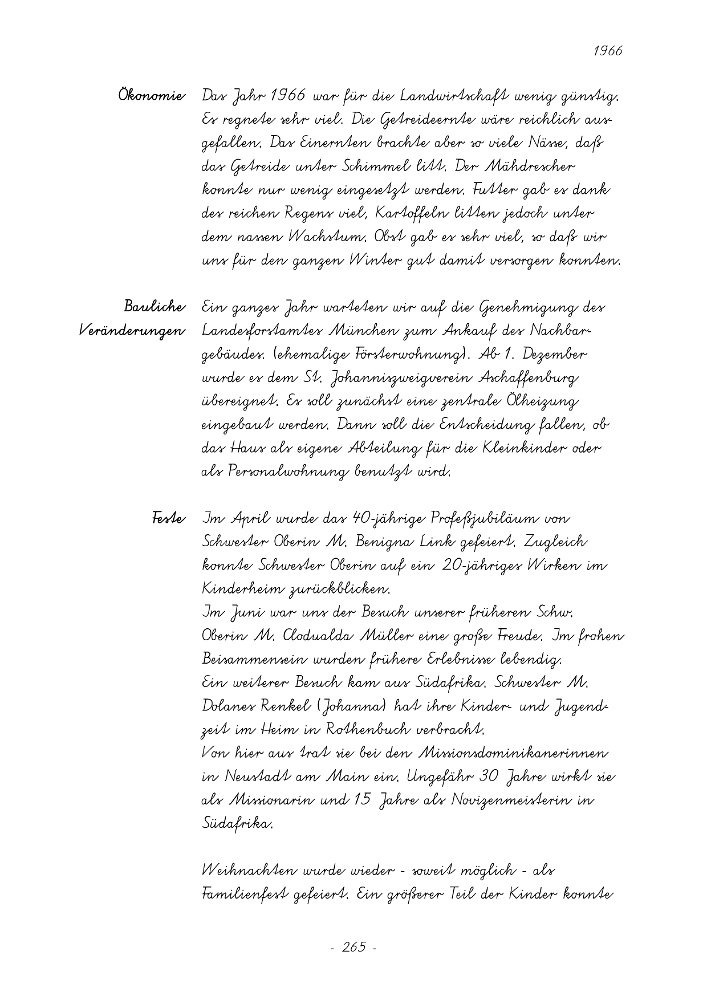 1966
Ökonomie Das Jahr 1966 war für die Landwirtschaft wenig günstig.
Es regnete sehr viel. Die Getreideernte wäre reichlich aus-
gefallen. Das Einernten brachte aber so viele Nässe, daß
das Getreide unter Schimmel litt. Der Mähdrescher
konnte nur wenig eingesetzt werden. Futter gab es dank
des reichen Regens viel, Kartoffeln litten jedoch unter
dem nassen Wachstum. Obst gab es sehr viel, so daß wir
uns für den ganzen Winter gut damit versorgen konnten.
Bauliche Ein ganzes Jahr warteten wir auf die Genehmigung des
Veränderungen Landesforstamtes München zum Ankauf des Nachbar-
gebäudes. (ehemalige Försterwohnung). Ab 1. Dezember
wurde es dem St. Johanniszweigverein Aschaffenburg
übereignet. Es soll zunächst eine zentrale Ölheizung
eingebaut werden. Dann soll die Entscheidung fallen, ob
das Haus als eigene Abteilung für die Kleinkinder oder
als Personalwohnung benutzt wird.
Feste Im April wurde das 40-jährige Profeßjubiläum von
Schwester Oberin M. Benigna Link gefeiert. Zugleich
konnte Schwester Oberin auf ein 20-jähriges Wirken im
Kinderheim zurückblicken.
Im Juni war uns der Besuch unserer früheren Schw.
Oberin M. Clodualda Müller eine große Freude. Im frohen
Beisammensein wurden frühere Erlebnisse lebendig.
Ein weiterer Besuch kam aus Südafrika. Schwester M.
Dolanes Renkel (Johanna) hat ihre Kinder- und Jugend-
zeit im Heim in Rothenbuch verbracht.
Von hier aus trat sie bei den Missionsdominikanerinnen
in Neustadt am Main ein. Ungefähr 30 Jahre wirkt sie
als Missionarin und 15 Jahre als Novizenmeisterin in
Südafrika.
Weihnachten wurde wieder - soweit möglich - als
Familienfest gefeiert. Ein größerer Teil der Kinder konnte
- 265 -